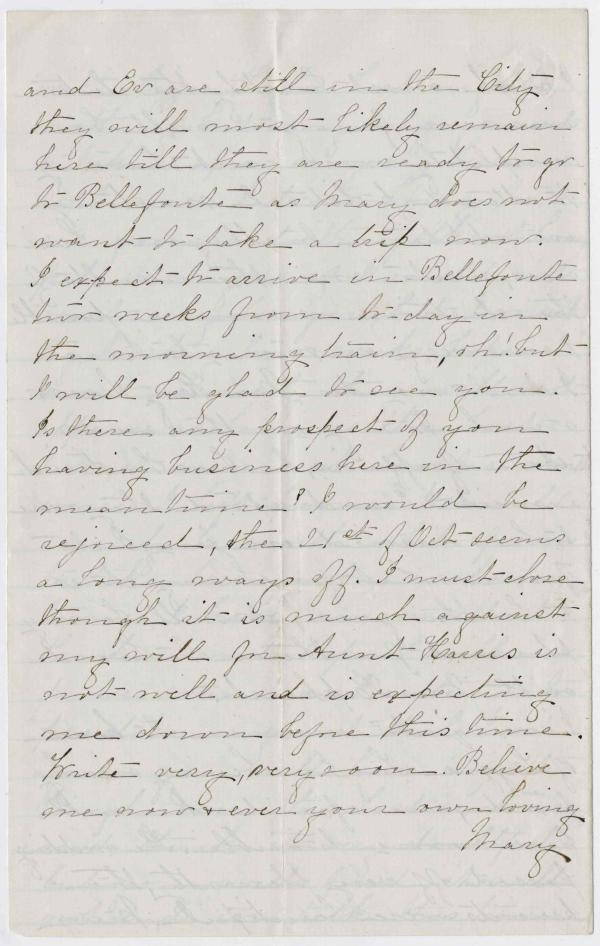 and Ev are still in the City
they will most likely remain
here till they are ready to go
to Bellefonte as Mary does not
want to take a trip now.
I expect to arrive in Bellefonte
two weeks from to-day in
the morning train, oh! but
I will be glad to see you.
Is there any prospect of you
having business here in the
meantime? I would be
rejoiced, the 21st of Oct seems
a long ways off. I must close
though it is much against
my will for Aunt Harris is
not well and is expecting
me down before this time.
Write very, very soon. Believe
me now & ever your own loving
Mary